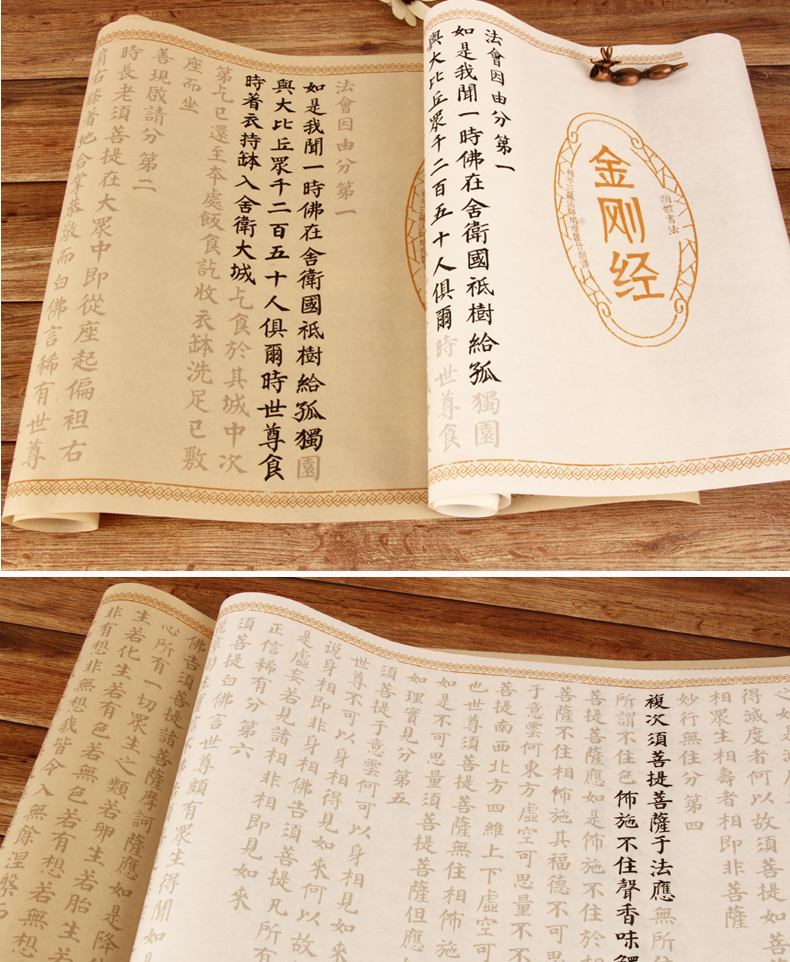 金刚经
顏體書法
法會因由分第一
如是我聞一時佛在舍衛國祗樹給孤獨園
與大比丘眾千二百五十人俱爾時世尊食
法會因由分第一
如是我聞一時佛在舍衛國祗樹給孤獨園
與大比丘眾千二百五十人俱爾時世尊食
時着衣持鉢入舍衛大城乞食於其城中次
第乞已還至本處飯食訖收衣鉢洗足已敷
座而坐
善現啟請分第二
時長老須菩提在大眾中即從座起偏袒右
肩右膝着地合掌恭敬而白佛言稀有世尊
得滅度者何以故須菩
相眾生相壽者相即非菩薩
妙行無住分第四
複次須菩提菩薩于法應無所住
所謂不住色佈施不住聲香味觸
菩提菩薩應如是佈施不住於相
菩薩不住相佈施其福德不可思
于意雲何東方虛空可思量不不
菩提南西北方四維上下虛空可
也世尊須菩提菩薩無住相佈施
如是不可思量須菩提菩薩但應
如理實見分第五
須菩提于意雲何可以身相見如來
世尊不可以身相得見如來何以故
說身相即非身相佛告須菩提凡所有
是虛妄若見諸相非相即見如來
正信稀有分第六
須菩提白佛言世尊頗有眾生得聞如是
佛告須菩提諸菩薩摩訶薩應如是降
心所有一切眾生之類若卵生若胎生
生若化生若有色若無色若有想若無想
非有想非無想我皆令入無餘涅槃